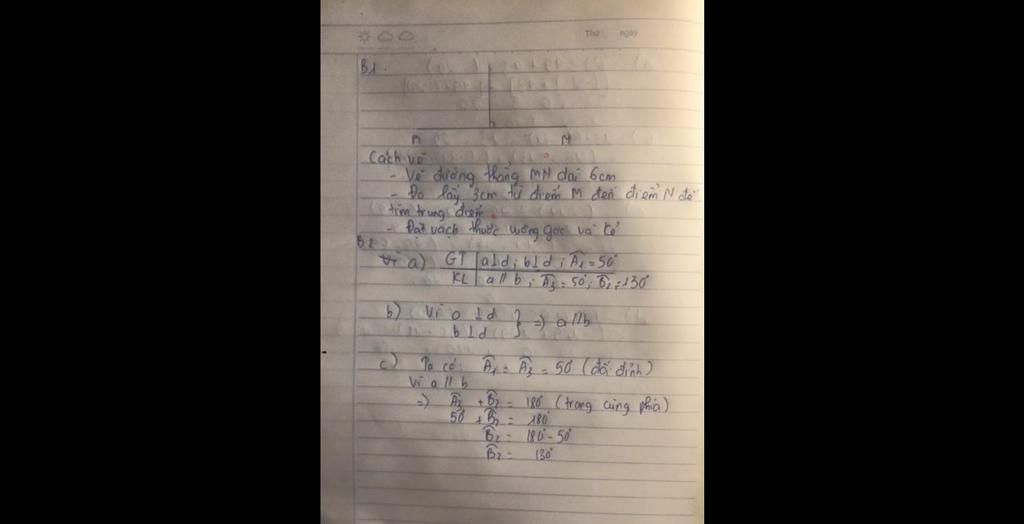 Thứ ngày
B1.
M N
Cách vẽ
- Vẽ đường thẳng MN dài 6cm
- Đo lấy 3cm từ điểm M đến điểm N để
tìm trung điểm
- Đặt vạch thước vuông góc và kẻ
B2
a) GT | a⊥d ; b⊥d ; Â₁ = 50°
KL | a // b ; Â₃ = 50° ; B̂₂ = 130°
b) Vì a ⊥ d } => a // b
b ⊥ d
c) Ta có: Â₁ = Â₃ = 50° (đối đỉnh)
Vì a // b
=> Â₃ + B̂₂ = 180° (trong cùng phía)
50° + B̂₂ = 180°
B̂₂ = 180° - 50°
B̂₂ = 130°